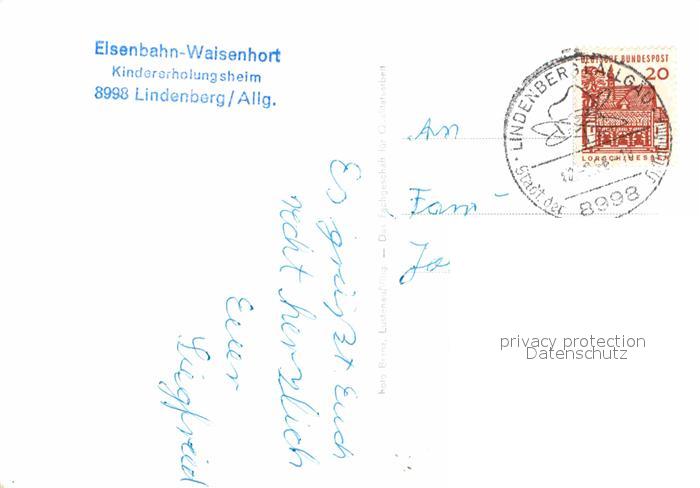 Eisenbahn-Waisenhort
Kindererholungsheim
8998 Lindenberg/Allg.
Es grüßt Euch
recht herzlich
Euer
Siegfried
Das Fachgeschäft für Qualitätsarbeit
An
Fam
Jo
DEUTSCHE BUNDESPOST
20
LORSCH/HESSEN
LINDENBERG ALLGÄU
Stadt der
8998
privacy protection
Datenschutz